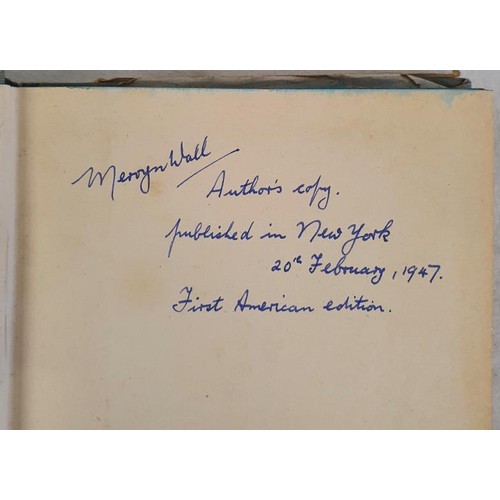 Mervyn Wall
Author's copy.
published in New York
20th February, 1947.
First American edition.